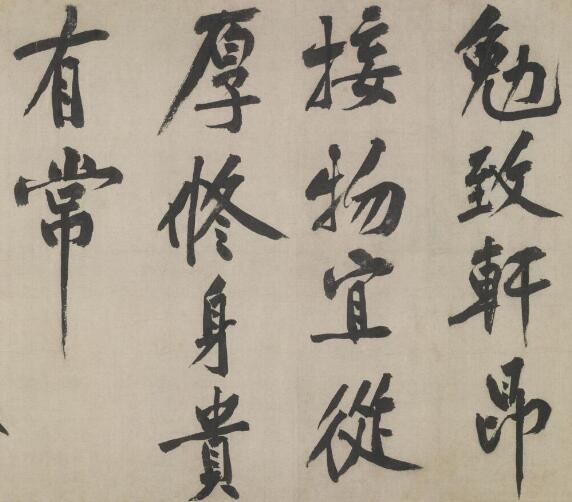 勉致軒昂
接物宜從
厚修身貴
有常